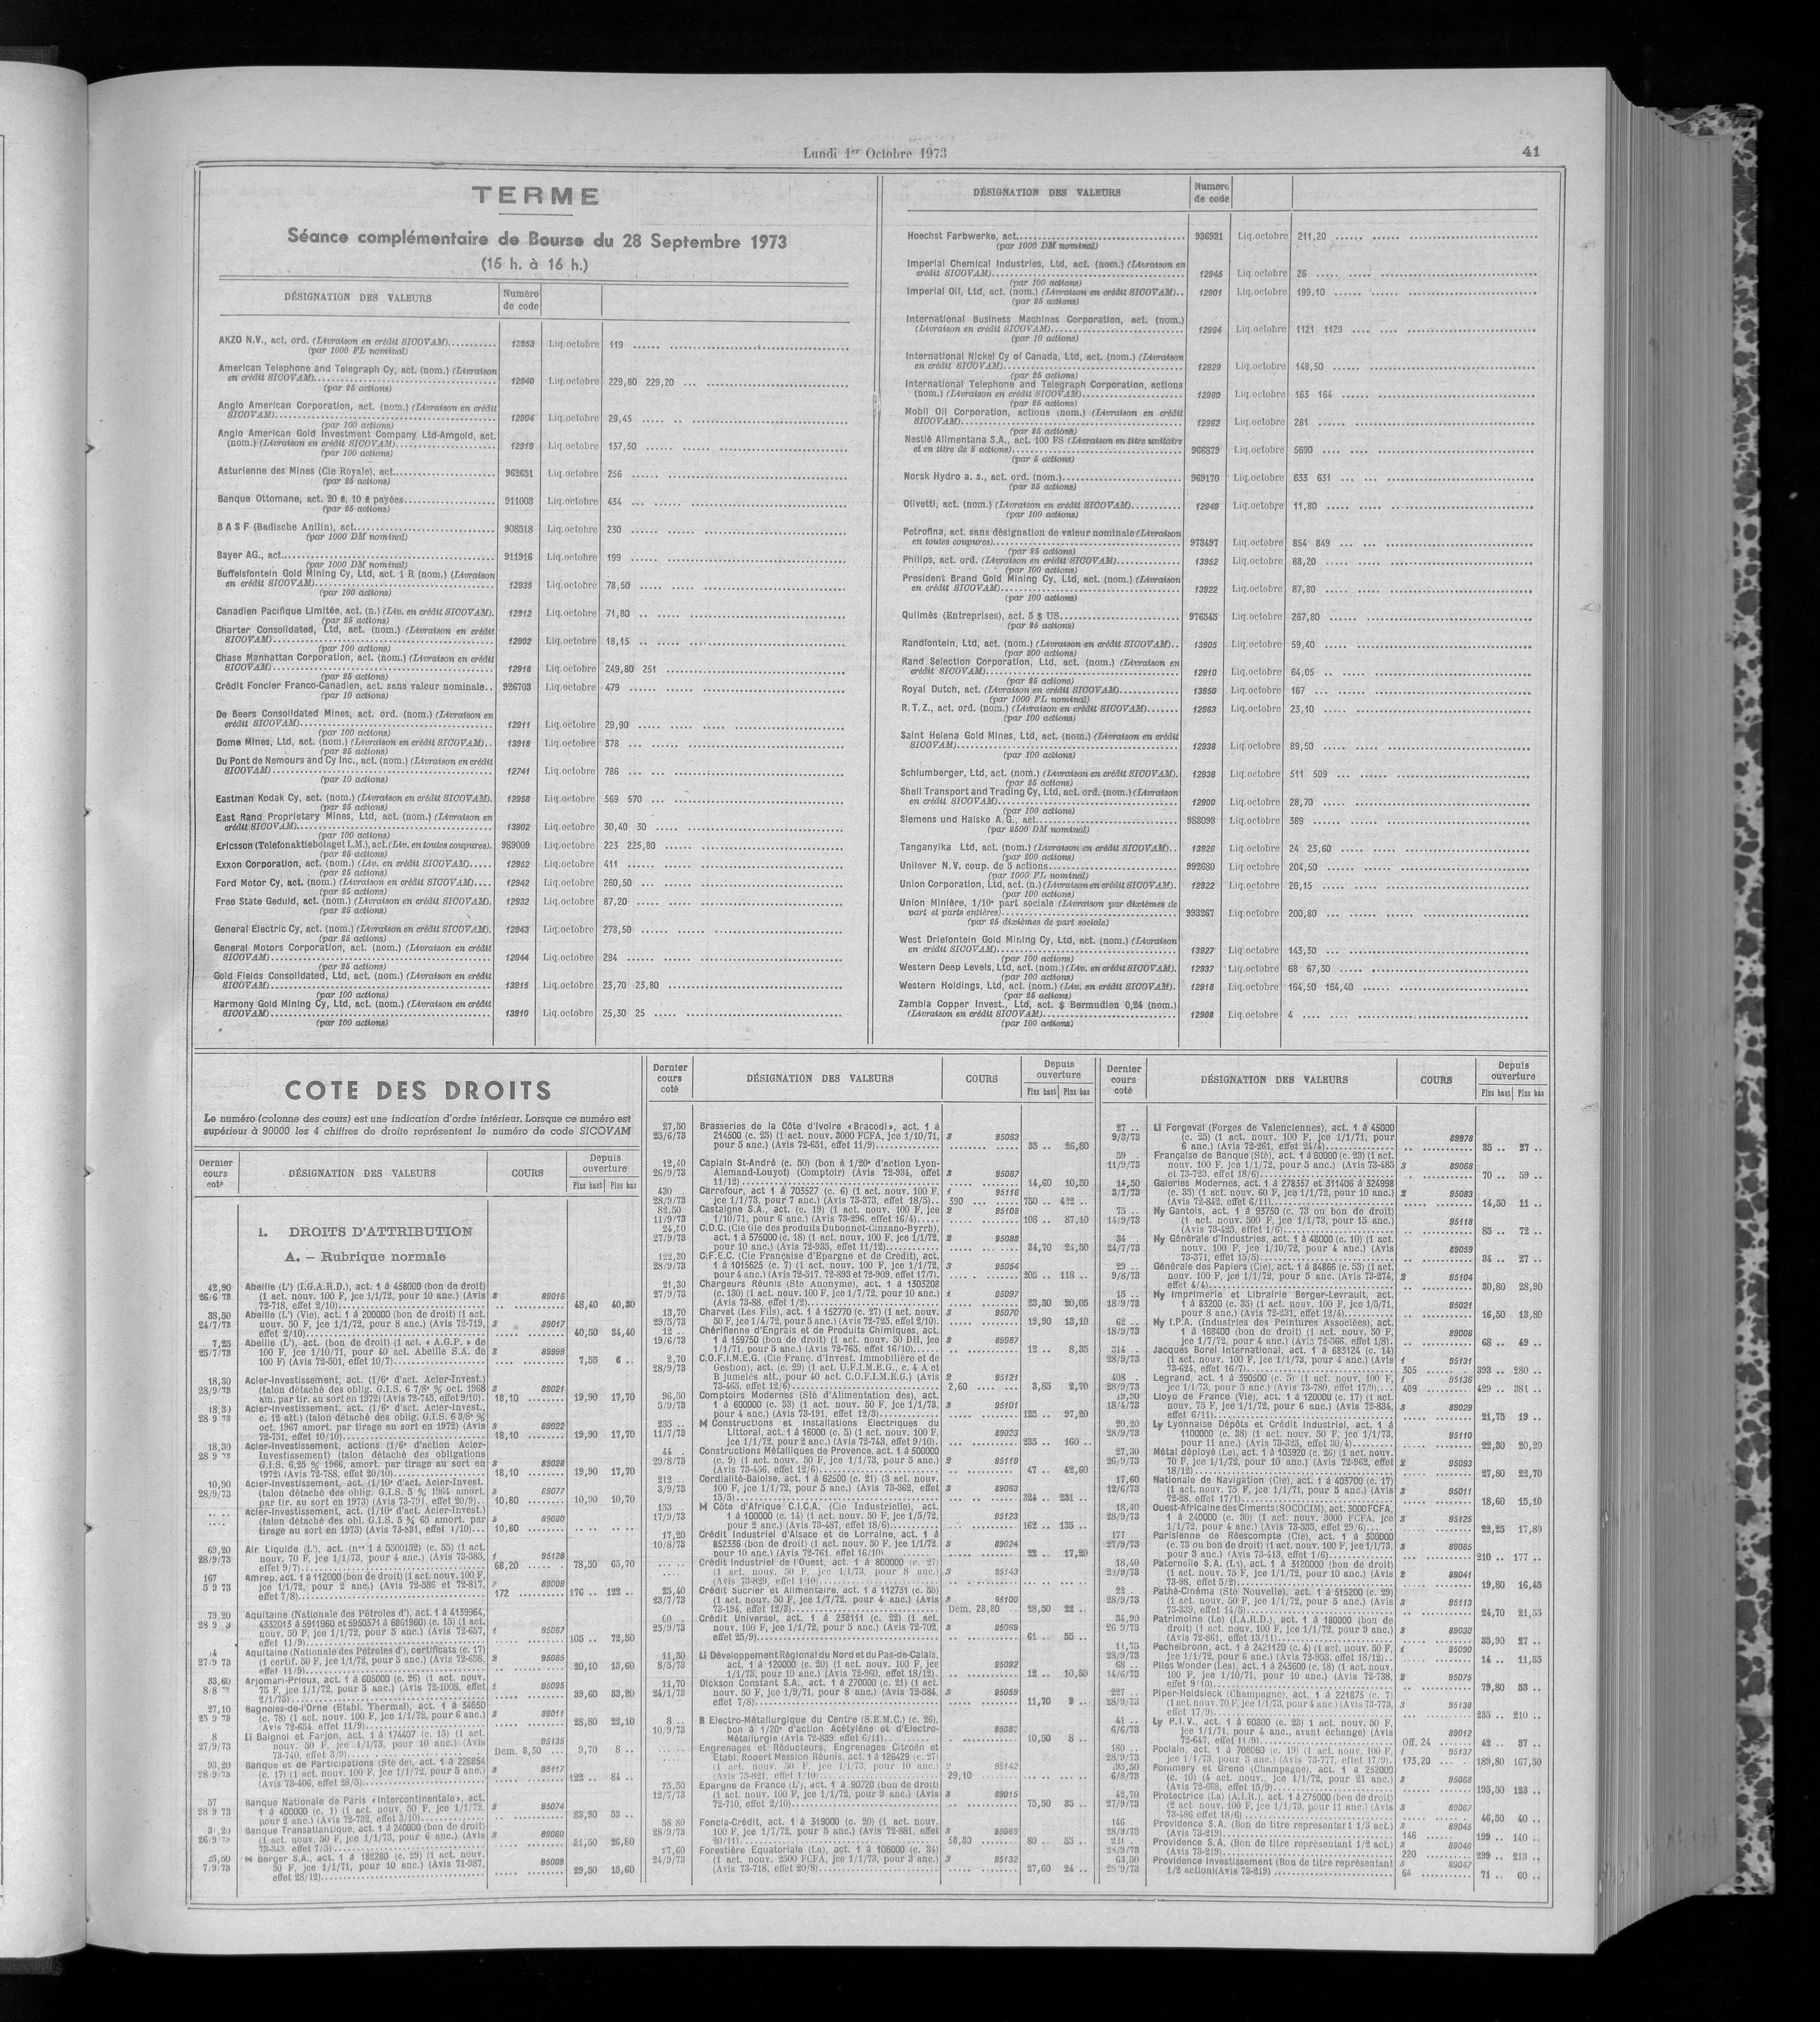 Lundi 1er Octobre 1973
41
TERME
Séance complémentaire de Bourse du 28 Septembre 1973
(15 h. à 16 h.)
DÉSIGNATION DES VALEURS
Numéro
de code
AKZO N.V., act. ord. (Livraison en crédit SICOVAM) 13953 Liq.octobre 119
(par 1000 FL nominal)
American Telephone and Telegraph Cy, act. (nom.) (Livraison
en crédit SICOVAM) 12940 Liq.octobre 229,80 229,20
(par 25 actions)
Anglo American Corporation, act. (nom.) (Livraison en crédit
SICOVAM) 12904 Liq.octobre 29,45
(par 100 actions)
Anglo American Gold Investment Company Ltd-Amgold, act.
(nom.) (Livraison en crédit SICOVAM) 12919 Liq.octobre 137,50
(par 100 actions)
Asturienne des Mines (Cie Royale), act. 962651 Liq.octobre 256
(par 25 actions)
Banque Ottomane, act. 20 £, 10 £ payées 911003 Liq.octobre 434
(par 25 actions)
B A S F (Badische Anilin), act. 908518 Liq.octobre 230
(par 1000 DM nominal)
Bayer AG., act. 911916 Liq.octobre 199
(par 1000 DM nominal)
Buffelsfontein Gold Mining Cy, Ltd, act. 1 R (nom.) (Livraison
en crédit SICOVAM) 12935 Liq.octobre 78,50
(par 100 actions)
Canadien Pacifique Limitée, act. (n.) (Liv. en crédit SICOVAM). 12912 Liq.octobre 71,80
(par 25 actions)
Charter Consolidated, Ltd, act. (nom.) (Livraison en crédit
SICOVAM) 12902 Liq.octobre 18,15
(par 100 actions)
Chase Manhattan Corporation, act. (nom.) (Livraison en crédit
SICOVAM) 12916 Liq.octobre 249,80 251
(par 25 actions)
Crédit Foncier Franco-Canadien, act. sans valeur nominale.. 926703 Liq.octobre 479
(par 10 actions)
De Beers Consolidated Mines, act. ord. (nom.) (Livraison en
crédit SICOVAM) 12911 Liq.octobre 29,90
(par 100 actions)
Dome Mines, Ltd, act. (nom.) (Livraison en crédit SICOVAM).. 13918 Liq.octobre 378
(par 25 actions)
Du Pont de Nemours and Cy Inc., act. (nom.) (Livraison en crédit
SICOVAM) 12741 Liq.octobre 786
(par 10 actions)
Eastman Kodak Cy, act. (nom.) (Livraison en crédit SICOVAM). 12958 Liq.octobre 569 570
(par 25 actions)
East Rand Proprietary Mines, Ltd, act. (nom.) (Livraison en
crédit SICOVAM) 13902 Liq.octobre 30,40 30
(par 100 actions)
Ericsson (Telefonaktiebolaget L.M.), act. (Liv. en toutes coupures). 989009 Liq.octobre 223 225,80
(par 25 actions)
Exxon Corporation, act. (nom.) (Liv. en crédit SICOVAM) 12952 Liq.octobre 411
(par 25 actions)
Ford Motor Cy, act. (nom.) (Livraison en crédit SICOVAM) 12942 Liq.octobre 260,50
(par 25 actions)
Free State Geduld, act. (nom.) (Livraison en crédit SICOVAM). 12932 Liq.octobre 87,20
(par 25 actions)
General Electric Cy, act. (nom.) (Livraison en crédit SICOVAM). 12943 Liq.octobre 278,50
(par 25 actions)
General Motors Corporation, act. (nom.) (Livraison en crédit
SICOVAM) 12944 Liq.octobre 294
(par 25 actions)
Gold Fields Consolidated, Ltd, act. (nom.) (Livraison en crédit
SICOVAM) 13915 Liq.octobre 23,70 23,80
(par 100 actions)
Harmony Gold Mining Cy, Ltd, act. (nom.) (Livraison en crédit
SICOVAM) 13910 Liq.octobre 25,30 25
(par 100 actions)
DÉSIGNATION DES VALEURS
Numéro
de code
Hoechst Farbwerke, act. 936931 Liq.octobre 211,20
(par 1000 DM nominal)
Imperial Chemical Industries, Ltd, act. (nom.) (Livraison en
crédit SICOVAM) 12945 Liq.octobre 26
(par 100 actions)
Imperial Oil, Ltd, act. (nom.) (Livraison en crédit SICOVAM).. 12901 Liq.octobre 199,10
(par 25 actions)
International Business Machines Corporation, act. (nom.)
(Livraison en crédit SICOVAM) 12984 Liq.octobre 1121 1129
(par 10 actions)
International Nickel Cy of Canada, Ltd, act. (nom.) (Livraison
en crédit SICOVAM) 12929 Liq.octobre 148,50
(par 25 actions)
International Telephone and Telegraph Corporation, actions
(nom.) (Livraison en crédit SICOVAM) 12960 Liq.octobre 163 164
(par 25 actions)
Mobil Oil Corporation, actions (nom.) (Livraison en crédit
SICOVAM) 12982 Liq.octobre 281
(par 25 actions)
Nestlé Alimentana S.A., act. 100 FS (Livraison en titre unitaire
et en titre de 5 actions) 966379 Liq.octobre 5690
(par 5 actions)
Norsk Hydro a. s., act. ord. (nom.) 969170 Liq.octobre 633 631
(par 25 actions)
Olivetti, act. (nom.) (Livraison en crédit SICOVAM) 12949 Liq.octobre 11,80
(par 100 actions)
Petrofina, act. sans désignation de valeur nominale (Livraison
en toutes coupures) 973497 Liq.octobre 854 849
(par 25 actions)
Philips, act. ord. (Livraison en crédit SICOVAM) 13952 Liq.octobre 88,20
(par 100 actions)
President Brand Gold Mining Cy, Ltd, act. (nom.) (Livraison
en crédit SICOVAM) 13922 Liq.octobre 87,80
(par 100 actions)
Quilmès (Entreprises), act. 5 $ US 976545 Liq.octobre 267,80
(par 25 actions)
Randfontein, Ltd, act. (nom.) (Livraison en crédit SICOVAM).. 13905 Liq.octobre 59,40
(par 200 actions)
Rand Selection Corporation, Ltd, act. (nom.) (Livraison en
crédit SICOVAM) 12910 Liq.octobre 64,05
(par 25 actions)
Royal Dutch, act. (Livraison en crédit SICOVAM) 13950 Liq.octobre 167
(par 1000 FL nominal)
R.T.Z., act. ord. (nom.) (Livraison en crédit SICOVAM) 12963 Liq.octobre 23,10
(par 100 actions)
Saint Helena Gold Mines, Ltd, act. (nom.) (Livraison en crédit
SICOVAM) 12938 Liq.octobre 89,50
(par 100 actions)
Schlumberger, Ltd, act. (nom.) (Livraison en crédit SICOVAM). 12936 Liq.octobre 511 509
(par 25 actions)
Shell Transport and Trading Cy, Ltd, act. ord. (nom.) (Livraison
en crédit SICOVAM) 12900 Liq.octobre 28,70
(par 100 actions)
Siemens und Halske A.G., act. 983098 Liq.octobre 389
(par 2500 DM nominal)
Tanganyika Ltd, act. (nom.) (Livraison en crédit SICOVAM).. 13926 Liq.octobre 24 23,60
(par 200 actions)
Unilever N.V. coup. de 5 actions 992680 Liq.octobre 204,50
(par 1000 FL nominal)
Union Corporation, Ltd, act. (n.) (Livraison en crédit SICOVAM). 12922 Liq.octobre 26,15
(par 100 actions)
Union Minière, 1/10e part sociale (Livraison par dixièmes de
part et parts entières) 993267 Liq.octobre 200,80
(par 25 dixièmes de part sociale)
West Driefontein Gold Mining Cy, Ltd, act. (nom.) (Livraison
en crédit SICOVAM) 13927 Liq.octobre 143,30
(par 100 actions)
Western Deep Levels, Ltd, act. (nom.) (Liv. en crédit SICOVAM). 12937 Liq.octobre 68 67,30
(par 100 actions)
Western Holdings, Ltd, act. (nom.) (Liv. en crédit SICOVAM). 12918 Liq.octobre 164,50 164,40
(par 25 actions)
Zambia Copper Invest., Ltd, act. $ Bermudien 0,24 (nom.)
(Livraison en crédit SICOVAM) 12908 Liq.octobre 4
(par 100 actions)
COTE DES DROITS
Le numéro (colonne des cours) est une indication d'ordre intérieur. Lorsque ce numéro est
supérieur à 90000 les 4 chiffres de droite représentent le numéro de code SICOVAM
Dernier
cours
coté
DÉSIGNATION DES VALEURS
COURS
Depuis
ouverture
Plus haut Plus bas
1. DROITS D'ATTRIBUTION
A. — Rubrique normale
42,90 Abeille (L') (I.G.A.R.D.), act. 1 à 458000 (bon de droit)
26/6/73 (1 act. nouv. 100 F, jce 1/1/72, pour 10 anc.) (Avis 89016
72-718, effet 2/10) 48,40 40,30
38,50 Abeille (L') (Vie), act. 1 à 200000 (bon de droit) (1 act.
24/7/73 nouv. 50 F, jce 1/1/72, pour 8 anc.) (Avis 72-719, 89017
effet 2/10) 40,50 34,40
7,25 Abeille (L'), act. (bon de droit) (1 act. « A.G.P. » de
25/7/73 100 F, jce 1/10/71, pour 40 act. Abeille S.A. de 89999
100 F) (Avis 72-501, effet 10/7) 7,55 6
18,30 Acier-Investissement, act. (1/6e d'act. Acier-Invest.)
28/9/73 (talon détaché des oblig. G.I.S. 6 7/8e % oct. 1968 89021
am. par tir. au sort en 1972) (Avis 72-745, effet 9/10). 18,10 19,90 17,70
18,30 Acier-Investissement, act. (1/6e d'act. Acier-Invest.,
28 9 73 c. 12 att.) (talon détaché des oblig. G.I.S. 6 3/8e %
oct. 1967 amort. par tirage au sort en 1972) (Avis 89022
72-751, effet 10/10) 18,10 19,90 17,70
18,30 Acier-Investissement, actions (1/6e d'action Acier-
28 9 73 Investissement) (talon détaché des obligations
G.I.S. 6,25 % 1966, amort. par tirage au sort en 89028
1972) (Avis 72-788, effet 20/10) 18,10 19,90 17,70
10,90 Acier-Investissement, act. (1/10e d'act. Acier-Invest.)
28/9/73 (talon détaché des oblig. G.I.S. 5 % 1964 amort. 89077
par tir. au sort en 1973) (Avis 73-791, effet 20/9) 10,80 10,90 10,70
Acier-Investissement, act. (1/10e d'act. Acier-Invest.)
(talon détaché des obl. G.I.S. 5 % 65 amort. par 89080
tirage au sort en 1973) (Avis 73-831, effet 1/10) 10,80
69,20 Air Liquide (L'), act. (nos 1 à 5500152) (c. 55) (1 act.
28/9/73 nouv. 70 F, jce 1/1/73, pour 4 anc.) (Avis 73-585, 95128
effet 9/7) 68,20 78,50 63,70
167 Amrep, act. 1 à 112000 (bon de droit) (1 act. nouv. 100 F,
5 9 73 jce 1/1/72, pour 2 anc.) (Avis 72-586 et 72-817, 89009
effet 7/8) 172 176 122
79,20 Aquitaine (Nationale des Pétroles d'), act. 1 à 4139964,
4352013 à 5911960 et 5950571 à 6861960) (c. 15) (1 act.
nouv. 50 F, jce 1/1/72, pour 5 anc.) (Avis 72-657, 95067
effet 11/9) 105 72,50
Aquitaine (Nationale des Pétroles d'), certificats (c. 17)
27/9 73 (1 certif. 50 F, jce 1/1/72, pour 5 anc.) (Avis 72-658, 95065
effet 11/9) 20,10 13,60
33,60 Arjomari-Prioux, act. 1 à 605000 (c. 26) (1 act. nouv.
75 F, jce 1/1/72, pour 5 anc.) (Avis 72-1008, effet 95095
2/1/73) 39,60 33,20
27,10 Bagnoles-de-l'Orne (Etabl. Thermal), act. 1 à 34650
(c. 78) (1 act. nouv. 100 F, jce 1/1/72, pour 6 anc.) 89011
Avis 72-654, effet 11/9) 28,80 22,10
8 Li Baignol et Farjon, act. 1 à 174407 (c. 15) (1 act.
27/9/73 nouv. 50 F, jce 1/1/73, pour 10 anc.) (Avis 95135
73-740, effet 3/9) Dem. 8,30 9,70 8
93,20 Banque et de Participations (Sté de), act. 1 à 226854
(c. 17) (1 act. nouv. 100 F, jce 1/1/72, pour 5 anc.) 95117
(Avis 73-406, effet 28/5) 122 84
57 Banque Nationale de Paris « Intercontinentale », act.
28 9 73 1 à 400000 (c. 1) (1 act. nouv. 50 F, jce 1/1/72, 95074
pour 2 anc.) (Avis 72-732, effet 3/10) 83,90 53
Banque Transatlantique, act. 1 à 240000 (bon de droit)
(1 act. nouv. 50 F, jce 1/1/73, pour 6 anc.) (Avis 89060
73-343, effet 7/5) 31,50 26,80
M Berger S.A., act. 1 à 188280 (c. 29) (1 act. nouv.
7/9/73 50 F, jce 1/1/71, pour 10 anc.) (Avis 71-987, 95009
effet 28/12) 29,50 15,60
Dernier
cours
coté
DÉSIGNATION DES VALEURS
COURS
Depuis
ouverture
Plus haut Plus bas
27,50 Brasseries de la Côte d'Ivoire « Bracodi », act. 1 à
25/6/73 214500 (c. 25) (1 act. nouv. 3000 FCFA, jce 1/10/71, 95063
pour 5 anc.) (Avis 72-651, effet 11/9) 35 26,80
12,40 Caplain St-André (c. 50) (bon à 1/20e d'action Lyon-
26/9/73 Alemand-Louyot) (Comptoir) (Avis 72-934, effet 95087
11/12) 14,60 10,50
430 Carrefour, act 1 à 703527 (c. 6) (1 act. nouv. 100 F, 95116
28/9/73 jce 1/1/73, pour 7 anc.) (Avis 73-373, effet 18/5) 390 750 422
82,50 Castaigne S.A., act. (c. 19) (1 act. nouv. 100 F, jce 95108
11/9/73 1/10/71, pour 6 anc.) (Avis 73-296, effet 16/4) 108 87,10
24,20 C.D.C. (Cie Gle des produits Dubonnet-Cinzano-Byrrh),
27/9/73 act. 1 à 575000 (c. 18) (1 act. nouv. 100 F, jce 1/1/72, 95088
pour 10 anc.) (Avis 72-935, effet 11/12) 34,70 24,50
122,30 C.F.E.C. (Cie Française d'Epargne et de Crédit), act.
28/9/73 1 à 1015625 (c. 7) (1 act. nouv. 100 F, jce 1/1/72, 95054
pour 4 anc.) (Avis 72-517, 72-893 et 72-909, effet 17/7). 205 118
21,30 Chargeurs Réunis (Sté Anonyme), act. 1 à 1303208
27/9/73 (c. 130) (1 act. nouv. 100 F, jce 1/7/72, pour 10 anc.) 95097
(Avis 73-88, effet 1/2) 23,30 20,05
13,70 Charvet (Les Fils), act. 1 à 152770 (c. 27) (1 act. nouv. 95070
29/5/73 50 F, jce 1/4/72, pour 5 anc.) (Avis 72-725, effet 2/10). 19,90 13,10
12 Chérifienne d'Engrais et de Produits Chimiques, act.
19/6/73 1 à 159750 (bon de droit) (1 act. nouv. 50 DH, jce 89987
1/1/71, pour 5 anc.) (Avis 72-765, effet 16/10) 12 8,35
2,70 C.O.F.I.M.E.G. (Cie Franç. d'Invest. Immobilière et de
28/9/73 Gestion), act. (c. 29) (1 act. U.F.I.M.E.G., c. 4 A et
B jumelés att., pour 40 act. C.O.F.I.M.E.G.) (Avis 95121
73-465, effet 12/6) 2,60 3,85 2,70
96,50 Comptoirs Modernes (Sté d'Alimentation des), act.
5/9/73 1 à 600000 (c. 53) (1 act. nouv. 50 F, jce 1/1/73, 95101
pour 4 anc.) (Avis 73-191, effet 12/3) 125 97,20
235 M Constructions et Installations Electriques du
11/7/73 Littoral, act. 1 à 16000 (c. 5) (1 act. nouv. 100 F, 89023
jce 1/1/72, pour 2 anc.) (Avis 72-743, effet 9/10) 235 160
44 Constructions Métalliques de Provence, act. 1 à 500000
29/8/73 (c. 9) (1 act. nouv. 50 F, jce 1/1/73, pour 5 anc.) 95119
(Avis 73-456, effet 12/6) 47 42,60
212 Cordialité-Bâloise, act. 1 à 62500 (c. 21) (3 act. nouv.
3/9/73 100 F, jce 1/1/72, pour 5 anc.) (Avis 73-362, effet 89063
15/5) 324 231
153 M Côte d'Afrique C.I.C.A. (Cie Industrielle), act.
17/9/73 1 à 100000 (c. 14) (1 act. nouv. 50 F, jce 1/5/72, 95123
pour 2 anc.) (Avis 73-487, effet 18/6) 162 135
17,20 Crédit Industriel d'Alsace et de Lorraine, act. 1 à
10/8/73 852336 (bon de droit) (1 act. nouv. 50 F, jce 1/1/72, 89024
pour 10 anc.) (Avis 72-761, effet 16/10) 23 17,20
Crédit Industriel de l'Ouest, act. 1 à 800000 (c. 27)
(1 act. nouv. 50 F, jce 1/1/73, pour 8 anc.) 95143
(Avis 73-829, effet 1/10)
25,40 Crédit Sucrier et Alimentaire, act. 1 à 112751 (c. 35)
23/7/73 (1 act. nouv. 50 F, jce 1/7/72, pour 4 anc.) (Avis 95100
73-194, effet 12/3) Dem. 28,80 28,50 22
60 Crédit Universel, act. 1 à 238111 (c. 23) (1 act.
25/9/73 nouv. 100 F, jce 1/1/72, pour 5 anc.) (Avis 72-702, 95069
effet 25/9) 61 55
11,30 Li Développement Régional du Nord et du Pas-de-Calais,
8/5/73 act. 1 à 120000 (c. 20) (1 act. nouv. 100 F, jce 95092
1/1/73, pour 10 anc.) (Avis 72-960, effet 18/12) 12 10,30
11,70 Dickson Constant S.A., act. 1 à 270000 (c. 21) (1 act.
24/1/73 nouv. 50 F, jce 1/9/71, pour 8 anc.) (Avis 72-584, 95059
effet 7/8) 11,70 9
8 B Electro-Métallurgique du Centre (S.E.M.C.) (c. 26),
10/9/73 bon à 1/20e d'action Acétylène et d'Electro-
Métallurgie (Avis 72-839, effet 6/11) 10,50 8
Engrenages et Réducteurs, Engrenages Citroën et
Etabl. Robert Messian Réunis, act. 1 à 126429 (c. 27)
(1 act. nouv. 50 F, jce 1/1/73, pour 10 anc.) 95142
(Avis 73-821, effet 1/10) 29,10
73,50 Epargne de France (L'), act. 1 à 90720 (bon de droit)
12/7/73 (1 act. nouv. 100 F, jce 1/1/72, pour 9 anc.) (Avis 89015
72-710, effet 2/10) 73,50 35
58 80 Foncia-Crédit, act. 1 à 319000 (c. 20) (1 act. nouv.
28/9/73 100 F, jce 1/7/72, pour 5 anc.) (Avis 72-881, effet 95089
20/11) 58,80 80 53
17,60 Forestière Equatoriale (La), act. 1 à 106000 (c. 34)
24/9/73 (1 act. nouv. 2500 FCFA, jce 1/1/73, pour 3 anc.) 95132
(Avis 73-718, effet 20/8) 27,60 24
Dernier
cours
coté
DÉSIGNATION DES VALEURS
COURS
Depuis
ouverture
Plus haut Plus bas
27 Li Forgeval (Forges de Valenciennes), act. 1 à 45000
9/3/73 (c. 25) (1 act. nouv. 100 F, jce 1/1/71, pour 89978
6 anc.) (Avis 72-261, effet 24/4) 35 27
59 Française de Banque (Sté), act. 1 à 60000 (c. 23) (1 act.
11/9/73 nouv. 100 F, jce 1/1/72, pour 5 anc.) (Avis 73-485 89068
et 73-723, effet 18/6) 70 59
14,50 Galeries Modernes, act. 1 à 278357 et 311406 à 324998
3/7/73 (c. 35) (1 act. nouv. 60 F, jce 1/1/72, pour 10 anc.) 95083
(Avis 72-842, effet 6/11) 14,50 11
73 Ny Gantois, act. 1 à 93750 (c. 73 ou bon de droit)
14/9/73 (1 act. nouv. 500 F, jce 1/1/73, pour 15 anc.) 95118
(Avis 73-425, effet 1/6) 85 72
34 Ny Générale d'Industries, act. 1 à 48000 (c. 10) (1 act.
24/7/73 nouv. 100 F, jce 1/10/72, pour 4 anc.) (Avis 89059
73-371, effet 15/5) 34 27
29 Générale des Papiers (Cie), act. 1 à 84866 (c. 53) (1 act.
9/8/73 nouv. 100 F, jce 1/1/72, pour 5 anc. (Avis 73-274, 95104
effet 4/4) 30,80 28,90
15 Ny Imprimerie et Librairie Berger-Levrault, act.
18/9/73 1 à 83200 (c. 35) (1 act. nouv. 100 F, jce 1/5/71, 95021
pour 8 anc.) (Avis 72-231, effet 12/4) 16,50 13,80
62 Ny I.P.A. (Industries des Peintures Associées), act.
18/9/73 1 à 168400 (bon de droit) (1 act. nouv. 50 F, 89006
jce 1/7/72, pour 4 anc.) (Avis 72-566, effet 1/8) 68 49
314 Jacques Borel International, act. 1 à 683124 (c. 14)
28/9/73 (1 act. nouv. 100 F, jce 1/1/73, pour 4 anc.) (Avis 95131
73-624, effet 16/7) 305 393 280
408 Legrand, act. 1 à 390500 (c. 5) (1 act. nouv. 100 F, 95136
28/9/73 jce 1/1/73, pour 5 anc.) (Avis 73-780, effet 17/9) 409 429 381
Lloyd de France (Vie), act. 1 à 120000 (c. 17) (1 act.
18/4/73 nouv. 75 F, jce 1/1/72, pour 6 anc.) (Avis 72-834, 89029
effet 6/11) 21,75 19
20,20 Ly Lyonnaise Dépôts et Crédit Industriel, act. 1 à
28/9/73 1100000 (c. 38) (1 act. nouv. 50 F, jce 1/1/73, 95110
pour 11 anc.) (Avis 73-325, effet 30/4) 22,30 20,20
27,30 Métal déployé (Le), act. 1 à 103920 (c. 26) (1 act. nouv.
26/9/73 70 F, jce 1/1/72, pour 10 anc.) (Avis 72-962, effet 95093
18/12) 27,80 22,70
17,60 Nationale de Navigation (Cie), act. 1 à 403700 (c. 17)
12/6/73 (1 act. nouv. 75 F, jce 1/1/71, pour 5 anc.) (Avis 95011
72-28, effet 17/1) 18,60 15,10
18,40 Ouest-Africaine des Ciments (SOCOCIM), act. 3000 FCFA,
28/9/73 1 à 240000 (c. 30) (1 act. nouv. 3000 FCFA, jce 95125
1/1/72, pour 4 anc.) (Avis 73-535, effet 29/6) 22,25 17,80
177 Parisienne de Réescompte (Cie), act. 1 à 300000
27/9/73 (c. 73 ou bon de droit) (1 act. nouv. 100 F, jce 1/1/73, 89065
pour 3 anc.) (Avis 73-413, effet 1/6) 210 177
18,40 Paternelle S.A. (La), act. 1 à 3120000 (bon de droit)
(1 act. nouv. 75 F, jce 1/1/72, pour 10 anc.) (Avis 89041
73-98, effet 5/2) 19,80 16,45
22 Pathé-Cinéma (Sté Nouvelle), act. 1 à 515200 (c. 29)
28/9/73 (1 act. nouv. 50 F, jce 1/1/72, pour 5 anc.) (Avis 95113
73-339, effet 14/5) 24,70 21,55
34,90 Patrimoine (Le) (I.A.R.D.), act. 1 à 180000 (bon de
26 9/73 droit) (1 act. nouv. 100 F, jce 1/1/72, pour 9 anc.) 89030
(Avis 72-861, effet 13/11) 35,90 27
11,75 Pechelbronn, act. 1 à 2421120 (c. 4) (1 act. nouv. 50 F, 95090
28/9/73 jce 1/1/72, pour 6 anc.) (Avis 72-953, effet 18/12) 14 11,55
68 Piles Wonder (Les), act. 1 à 243600 (c. 18) (1 act. nouv.
14/6/73 100 F, jce 1/10/71, pour 10 anc.) (Avis 72-738, 95075
effet 9/10) 79,80 53
227 Piper-Heidsieck (Champagne), act. 1 à 221875 (c. 7)
28/9/73 (1 act. nouv. 70 F, jce 1/1/73, pour 4 anc.) (Avis 73-773, 95138
effet 17/9) 235 210
41 Ly P.I.V., act. 1 à 60800 (c. 23) 1 act. nouv. 50 F,
6/6/73 jce 1/1/71, pour 4 anc., avant échange) (Avis 89012
72-647, effet 11/9) Off. 24 42 37
180 Poclain, act. 1 à 708060 (c. 19) (1 act. nouv. 100 F, 95137
28/9/73 jce 1/1/73, pour 3 anc.) (Avis 73-777, effet 17/9) 173,20 189,80 167,50
Pommery et Greno (Champagne), act. 1 à 252000
6/8/73 (c. 10) (4 act. nouv., jce 1/1/72, pour 21 anc.) 95088
(Avis 72-668, effet 15/9) 195,50 123
42,70 Protectrice (La) (A.I.R.), act. 1 à 275000 (bon de droit)
27/9/73 (2 act. nouv. 100 F, jce 1/1/73, pour 11 anc.) (Avis 89067
73-486 effet 18/6) 46,50 40
146 Providence S.A. (Bon de titre représentant 1/3 act.) 89045
28/9/73 (Avis 73-219) 146 199 140
221 Providence S.A. (Bon de titre représentant 1/2 act.) 89046
28/9/73 (Avis 73-219) 220 299 213
63,50 Providence Investissement (Bon de titre représentant 89047
28/9/73 1/2 action) (Avis 73-219) 64 71 60